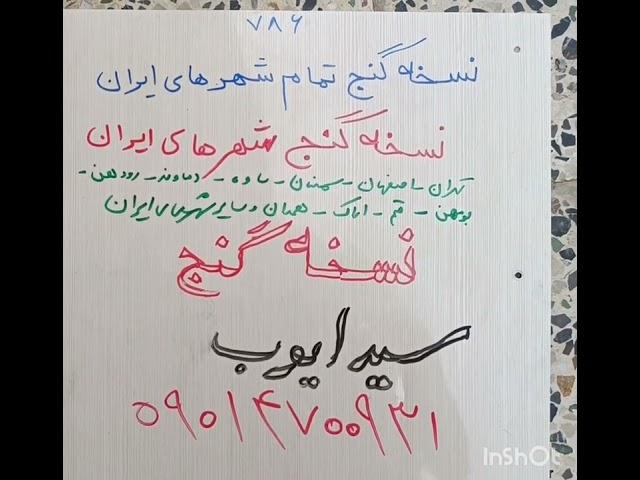 ۷۸۶
نسخه گنج تمام شهرهای ایران
نسخه گنج شهرهای ایران
تهران - اصفهان - سمنان - ساوه - دماوند - رودهن -
بومهن - قم - اراک - همدان و سایر شهرهای ایران
نسخه گنج
سید ایوب
۰۹۰۱۴۷۰۰۹۳۱
InShOt